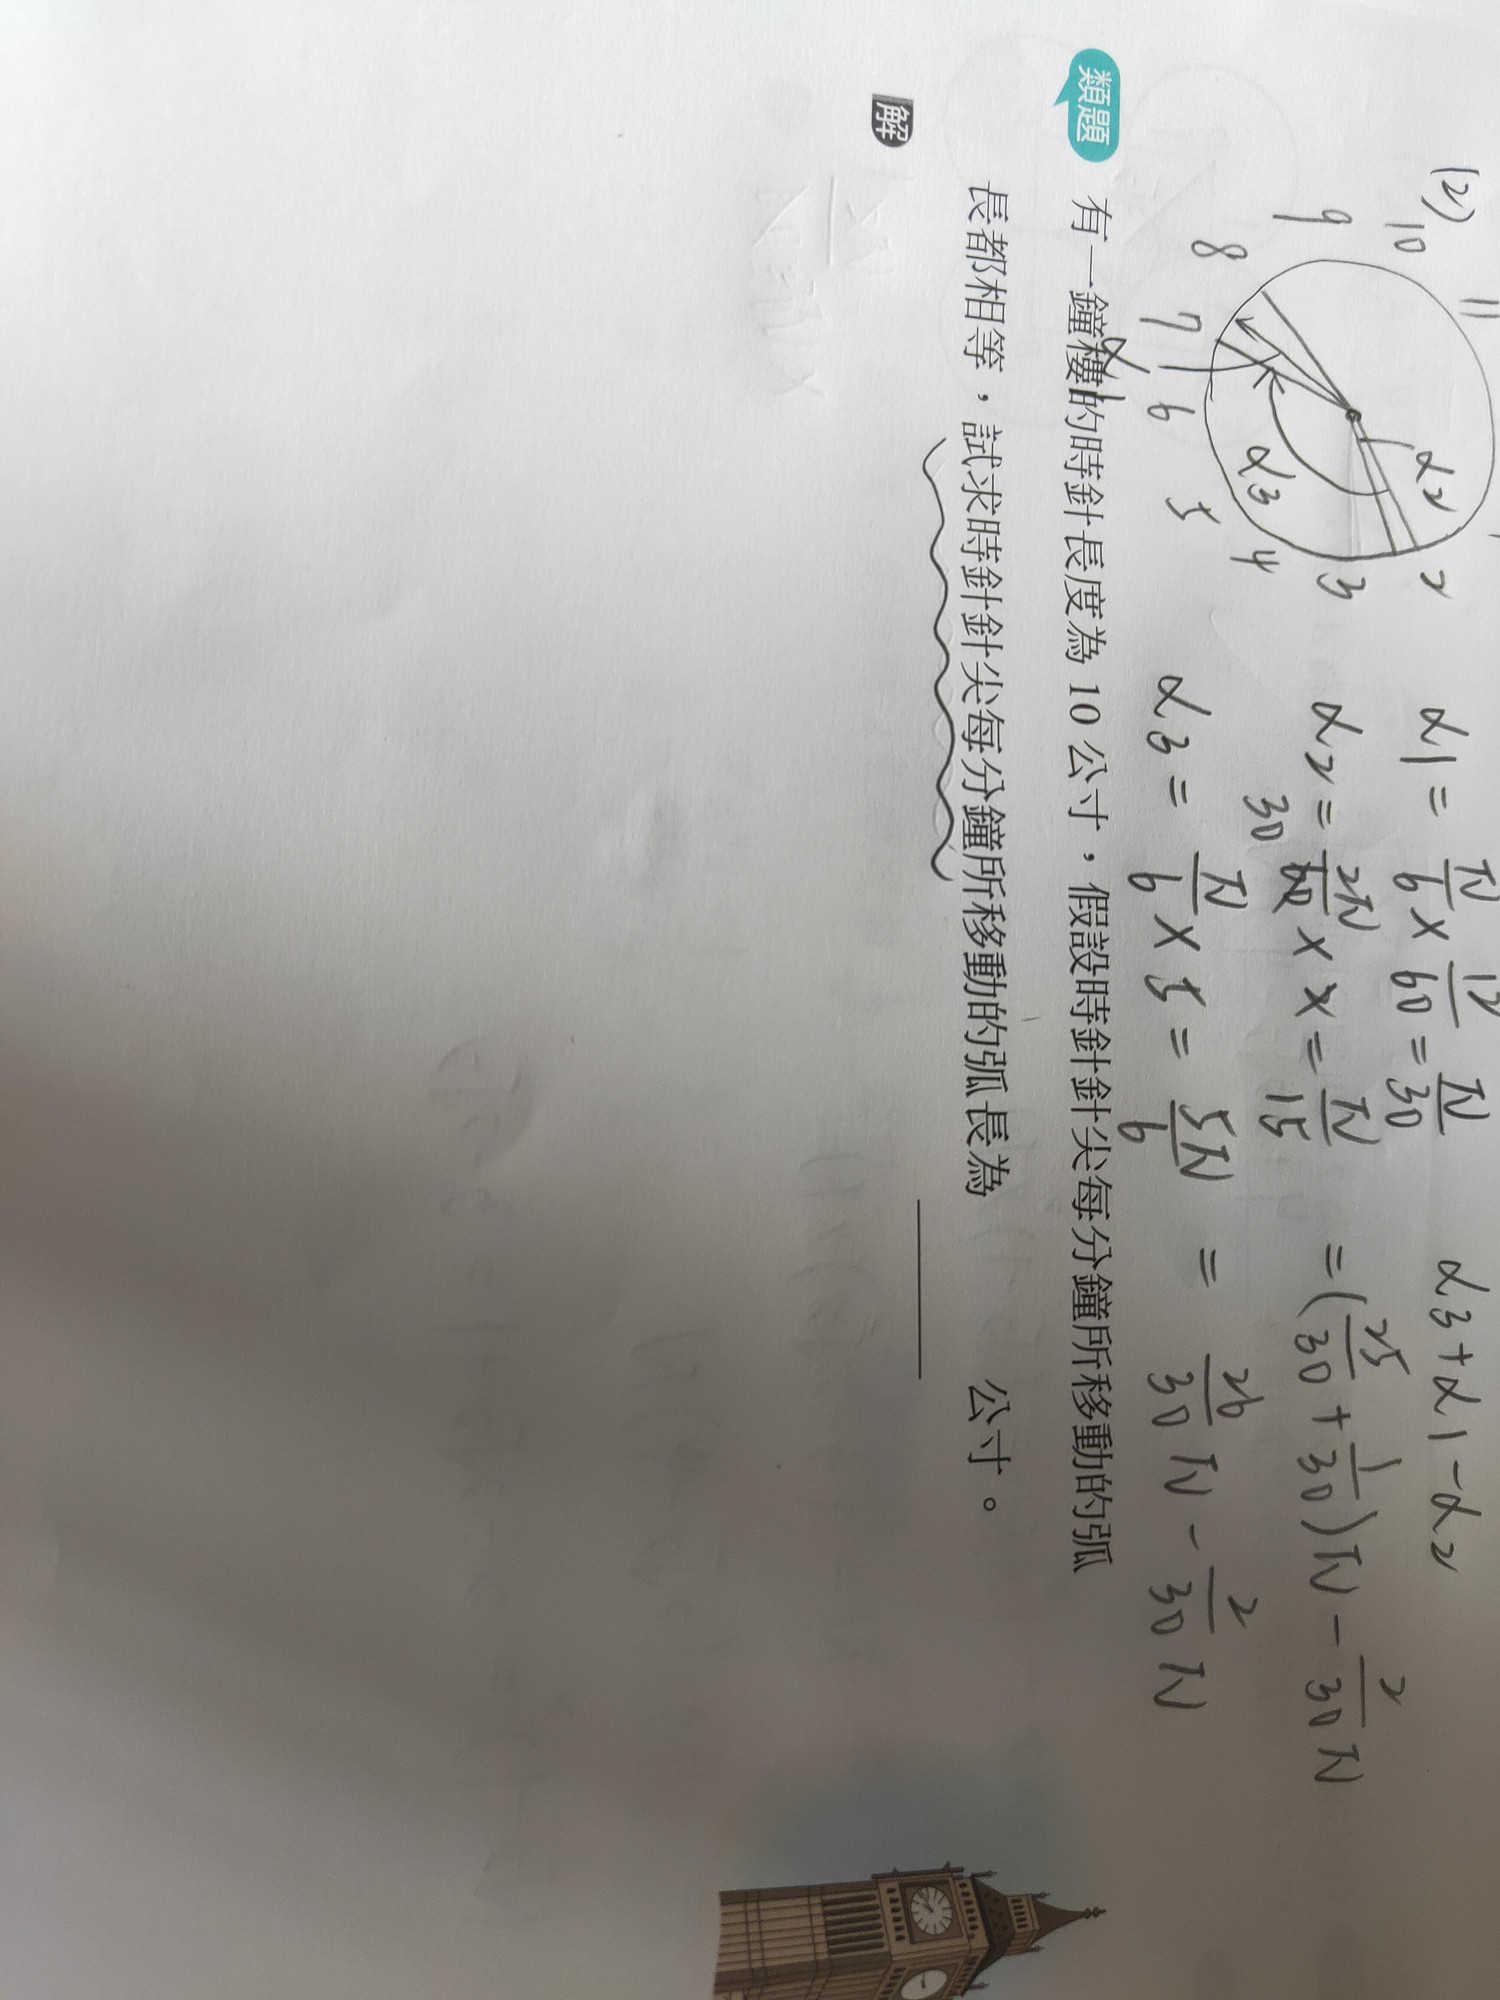 (2)
11
10
2
9
3
8
4
7
6
5
α2
α3
α1
α1 = π/6 × 12/60 = π/30
α2 = 2π/60 × x = π/15
30
α3 = π/6 × 5 = 5π/6
α3+α1-α2
= (25/30 + 1/30)π - 2/30 π
= 26/30 π - 2/30 π
類題 有一鐘樓的時針長度為 10 公寸,假設時針針尖每分鐘所移動的弧
長都相等,試求時針針尖每分鐘所移動的弧長為 ______ 公寸。
解